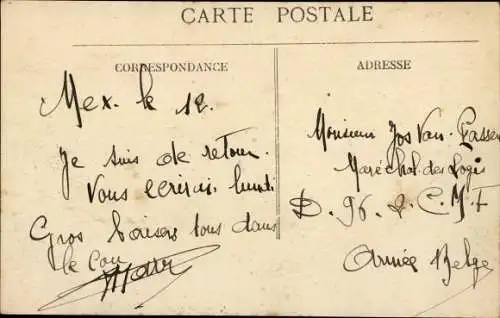 CARTE POSTALE
CORRESPONDANCE
Mex. le 12.
Je suis de retour.
Vous écrirai lundi
Gros baisers tous dans
le cou
ADRESSE
Monsieur Jos Van
Maréchal des Logis
D. 96.
Armée Belge